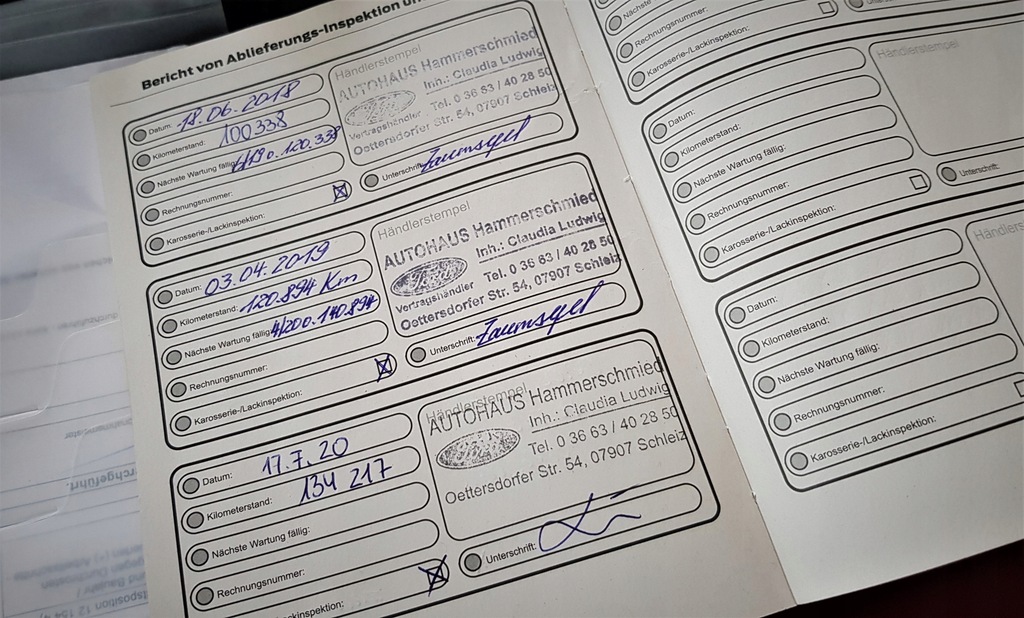 Bericht von Ablieferungs-Inspektion
Datum: 18.06.2018
Kilometerstand: 100338
Nächste Wartung fällig:
Rechnungsnummer:
Karosserie-/Lackinspektion:
Händlerstempel
AUTOHAUS Hammerschmied
Inh.: Claudia Ludwig
Tel. 0 36 63 / 40 28 50
Vertragshändler
Oettersdorfer Str. 54, 07907 Schleiz
Unterschrift:
Datum: 03.04.2019
Kilometerstand: 120.894 Km
Nächste Wartung fällig: 4/200.140.894
Rechnungsnummer:
Karosserie-/Lackinspektion:
Händlerstempel
AUTOHAUS Hammerschmied
Inh.: Claudia Ludwig
Tel. 0 36 63 / 40 28 50
Vertragshändler
Oettersdorfer Str. 54, 07907 Schleiz
Unterschrift:
Datum: 17.7.20
Kilometerstand: 134 217
Nächste Wartung fällig:
Rechnungsnummer:
Händlerstempel
AUTOHAUS Hammerschmied
Inh.: Claudia Ludwig
Tel. 0 36 63 / 40 28 50
Oettersdorfer Str. 54, 07907 Schleiz
Unterschrift:
Rechnungsnummer:
Karosserie-/Lackinspektion:
Datum:
Kilometerstand:
Nächste Wartung fällig:
Rechnungsnummer:
Karosserie-/Lackinspektion:
Händlerstempel
Unterschrift:
Datum:
Kilometerstand:
Nächste Wartung fällig:
Rechnungsnummer:
Karosserie-/Lackinspektion: